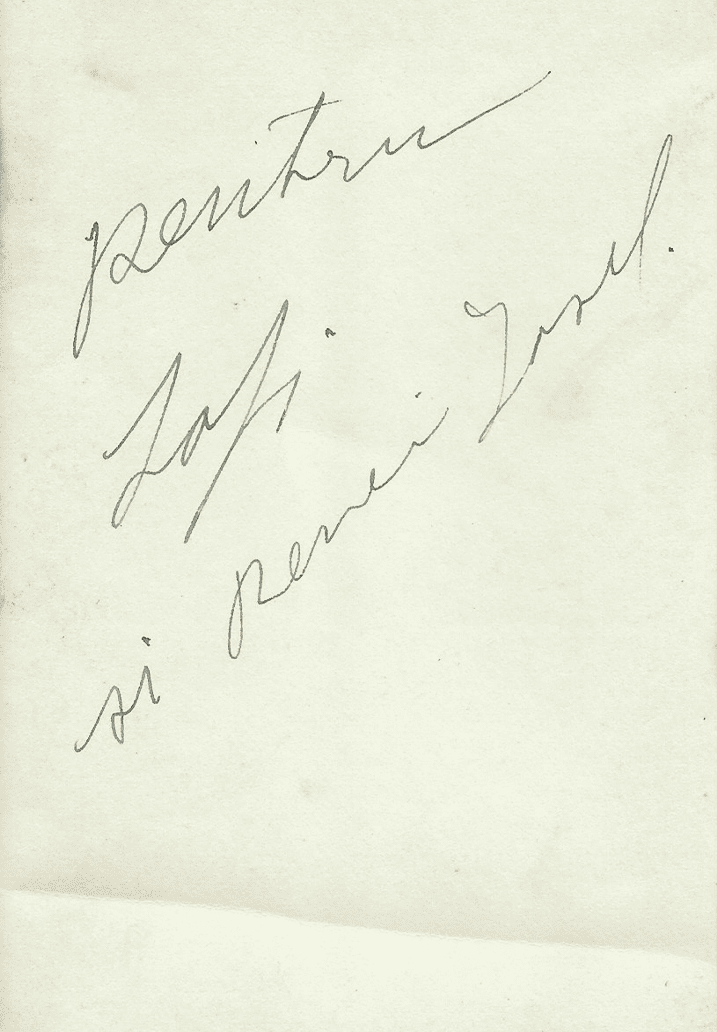 pentru
Lofi
si penei Iosel.